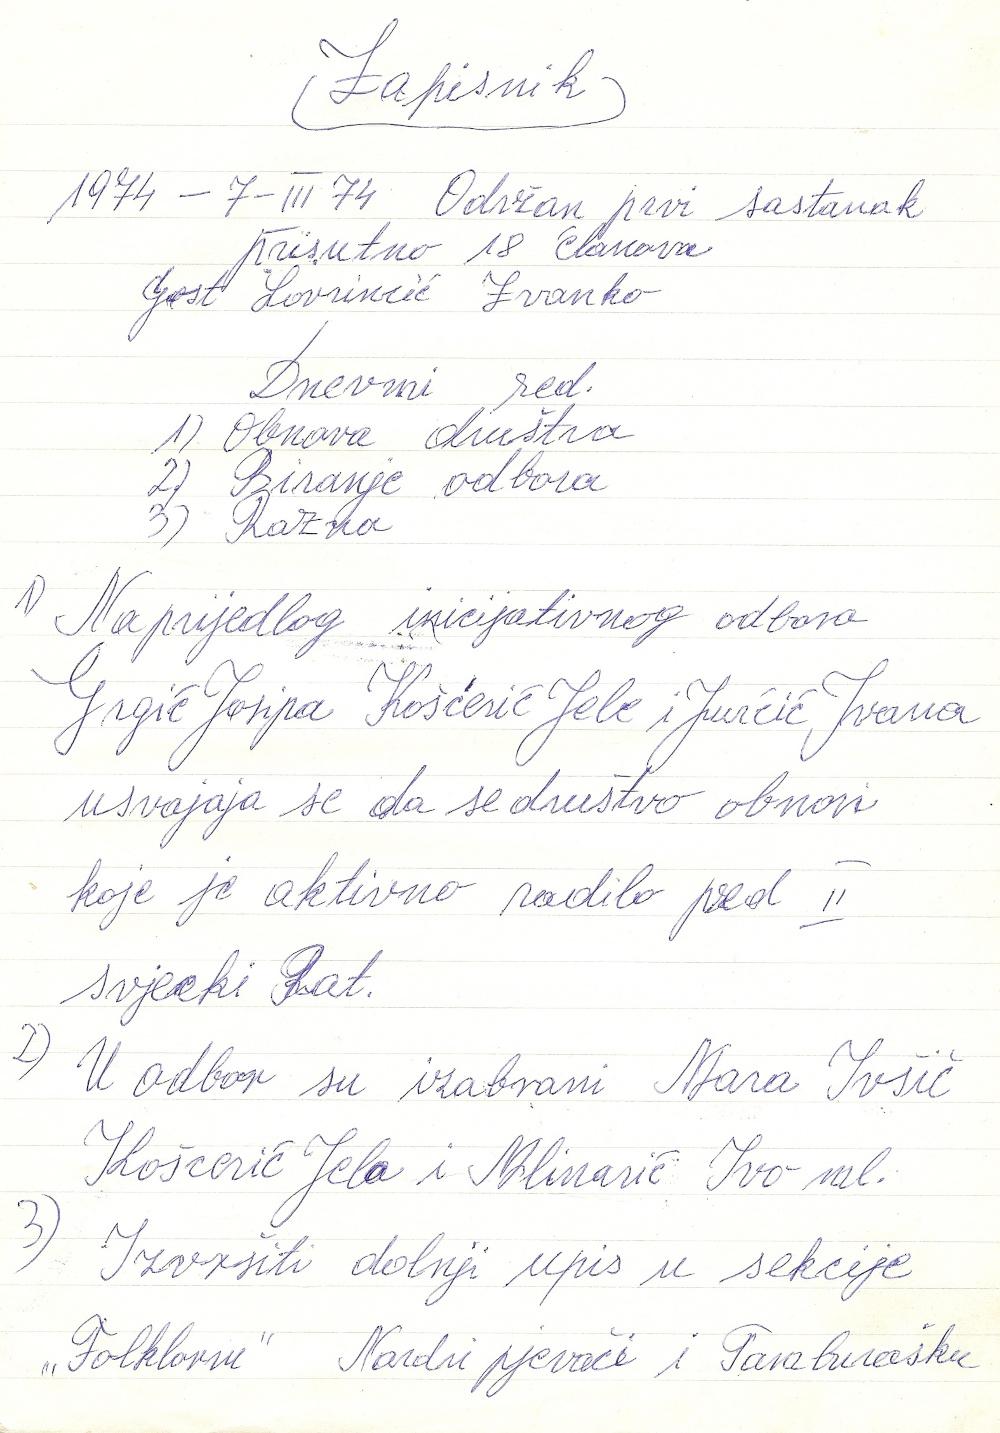 Zapisnik
1974 - 7-III 74 Održan prvi sastanak
prisutno 18 članova
gost Lovrinčić Zvanko
Dnevni red.
1) Obnova društva
2) Biranje odbora
3) Razna
1) Na prijedlog inicijativnog odbora
Grgić Josipa Košćerić Jele i Jurčić Ivana
usvajaja se da se društvo obnovi
koje je aktivno radilo pred II
svjecki Rat.
2) U odbor su izabrani Mara Ivšić
Košcerić Jela i Mlinarić Ivo ml.
3) Izvršiti dolnji upis u sekcije
„Folklorni" Nardni pjevači i Tamburašku